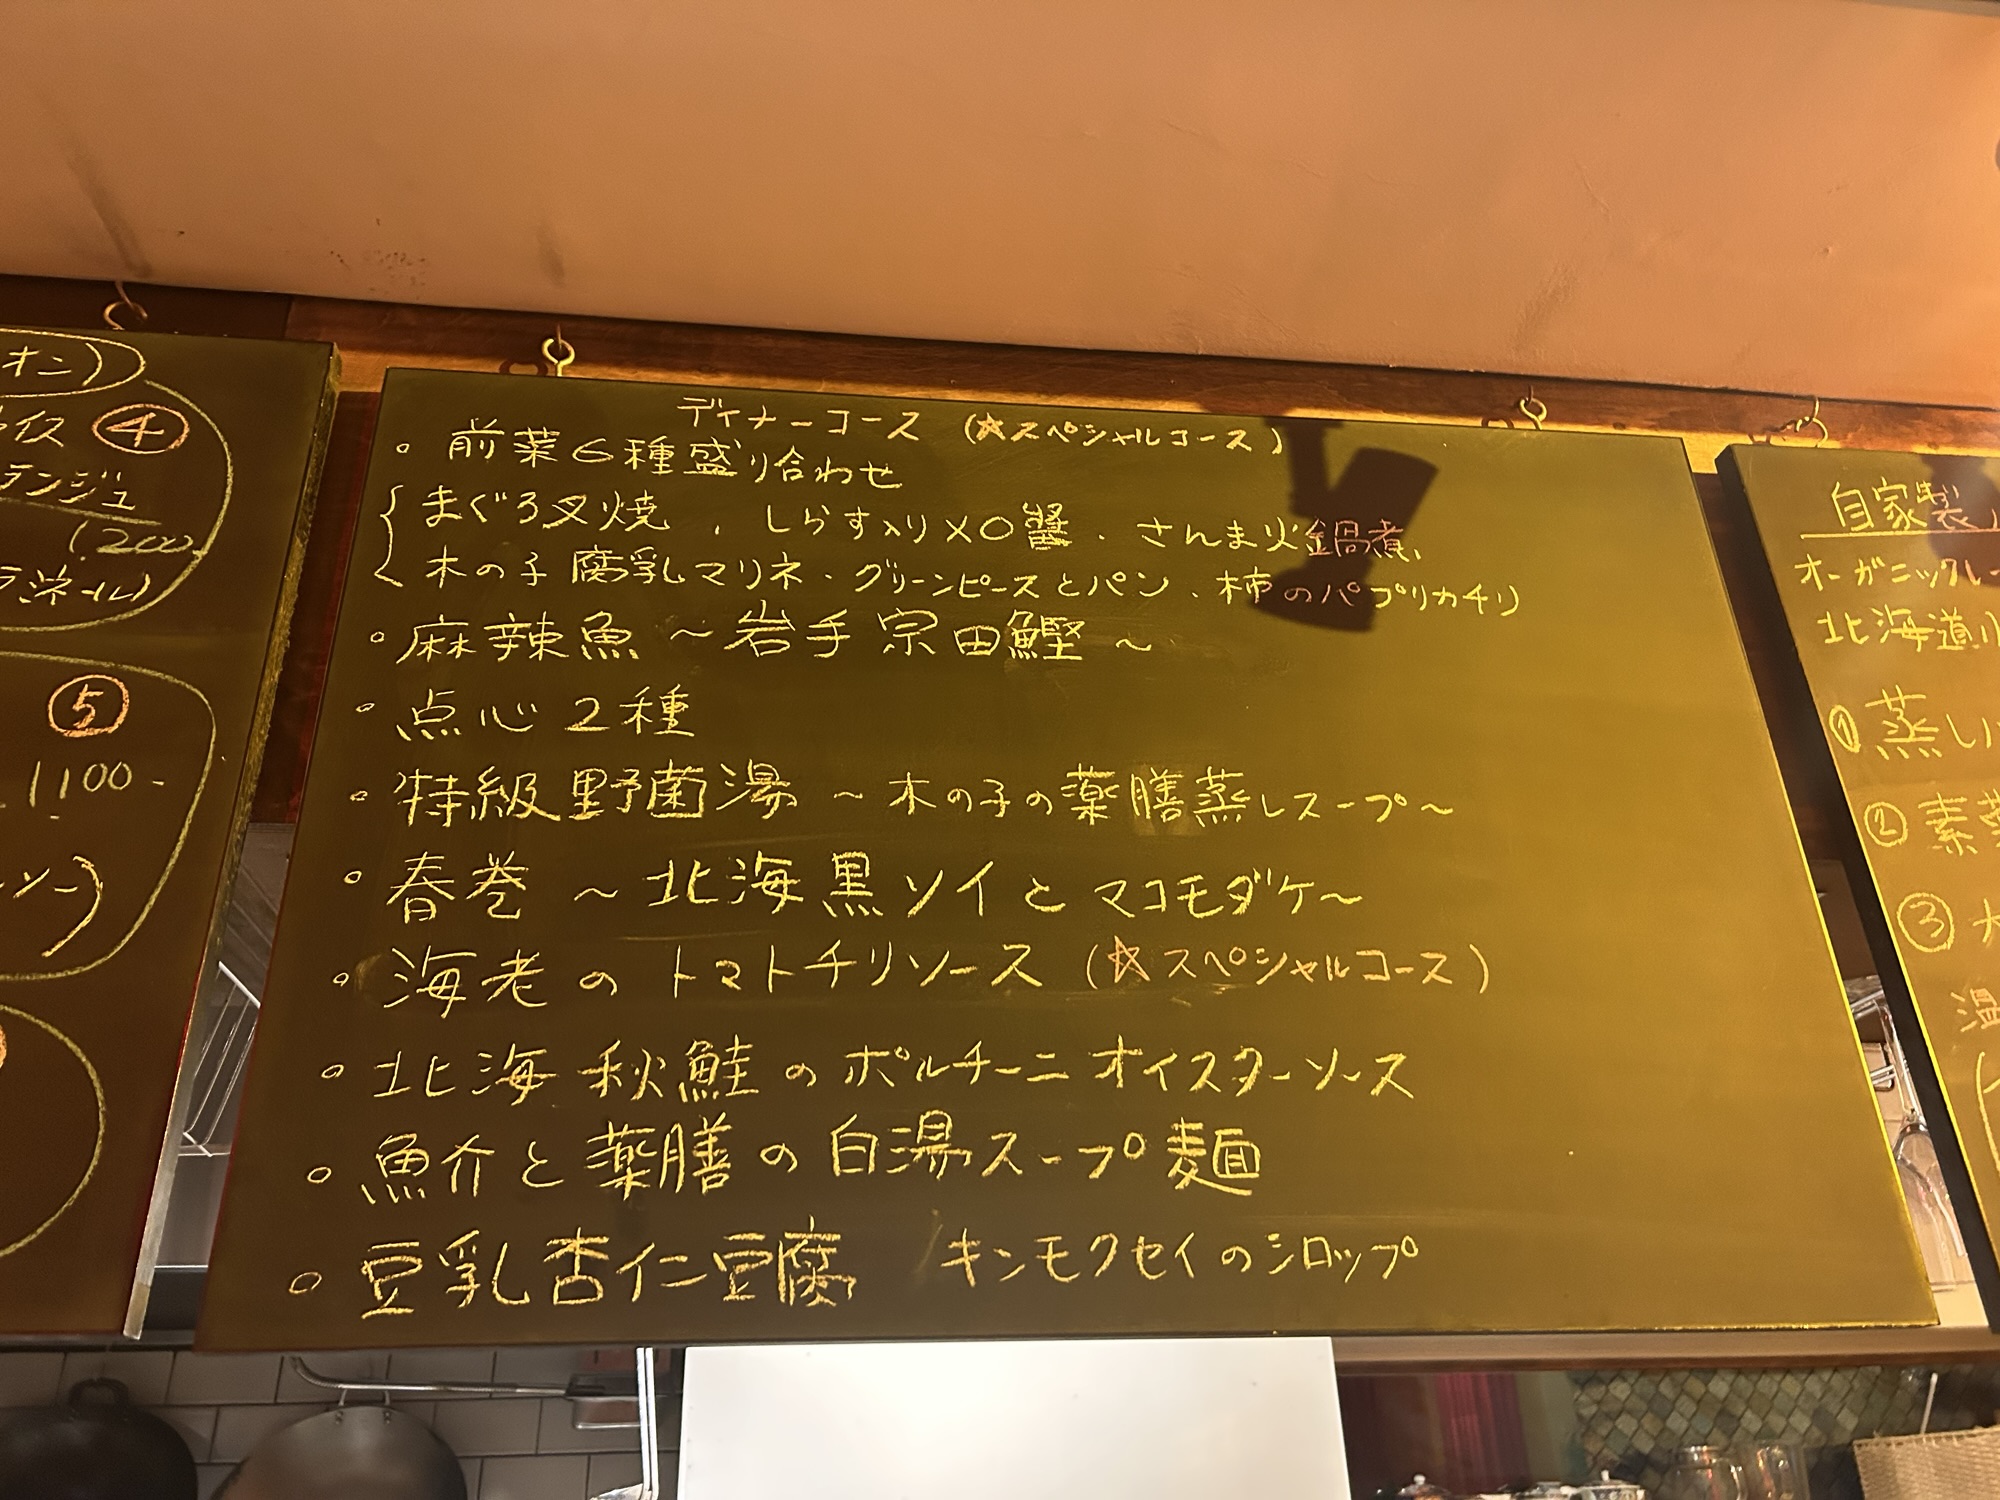 オニ)
イス ④
ランジュ
1,200
⑤
1100-
ソー)
ディナーコース (☆スペシャルコース)
。前菜6種盛り合わせ
まぐろ叉焼、しらす入りXO醬、さんま火鍋煮、
木の子腐乳マリネ、グリーンピースとパン、柿のパプリカチリ
。麻辣魚 ~岩手 宗田鰹~
。点心2種
。特級野菌湯 ~木の子の薬膳蒸しスープ~
。春巻 ~北海黒ソイとマコモダケ~
。海老のトマトチリソース (☆スペシャルコース)
。北海 秋鮭のポルチーニオイスターソース
。魚介と薬膳の白湯スープ麺
。豆乳杏仁豆腐 キンモクセイのシロップ
自家製
オーガニックレ
北海道小
①蒸し
②素
③大
温